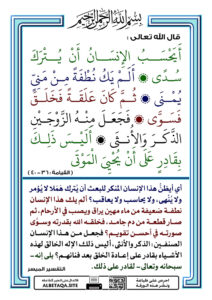 بسم الله الرحمن الرحيم
قال الله تعالى :
أَيَحْسَبُ الْإِنسَانُ أَنْ يُتْرَكَ
سُدًى ۞ أَلَمْ يَكُ نُطْفَةً مِنْ مَنِيٍّ
يُمْنَى ۞ ثُمَّ كَانَ عَلَقَةً فَخَلَقَ
فَسَوَّى ۞ فَجَعَلَ مِنْهُ الزَّوْجَيْنِ
الذَّكَرَ وَالْأُنثَى ۞ أَلَيْسَ ذَلِكَ
بِقَادِرٍ عَلَى أَنْ يُحْيِيَ الْمَوْتَى
(القيامة: ٣٦ - ٤٠)
أي أيظنُّ هذا الإنسان المنكر للبعث أن يُترك هَمَلا لا يُؤمر
ولا يُنْهى، ولا يحاسب ولا يعاقب؟ ألم يك هذا الإنسان
نطفة ضعيفة من ماء مهين يراق ويصب في الأرحام، ثم
صار قطعة من دم جامد، فخلقه الله بقدرته وسوَّى
صورته في أحسن تقويم؟ فجعل من هذا الإنسان
الصنفين: الذكر والأنثى، أليس ذلك الإله الخالق لهذه
الأشياء بقادر على إعادة الخلق بعد فنائهم؟ بلى إنه -
سبحانه وتعالى - لقادر على ذلك.
التفسير الميسر
ALBETAQA.SITE